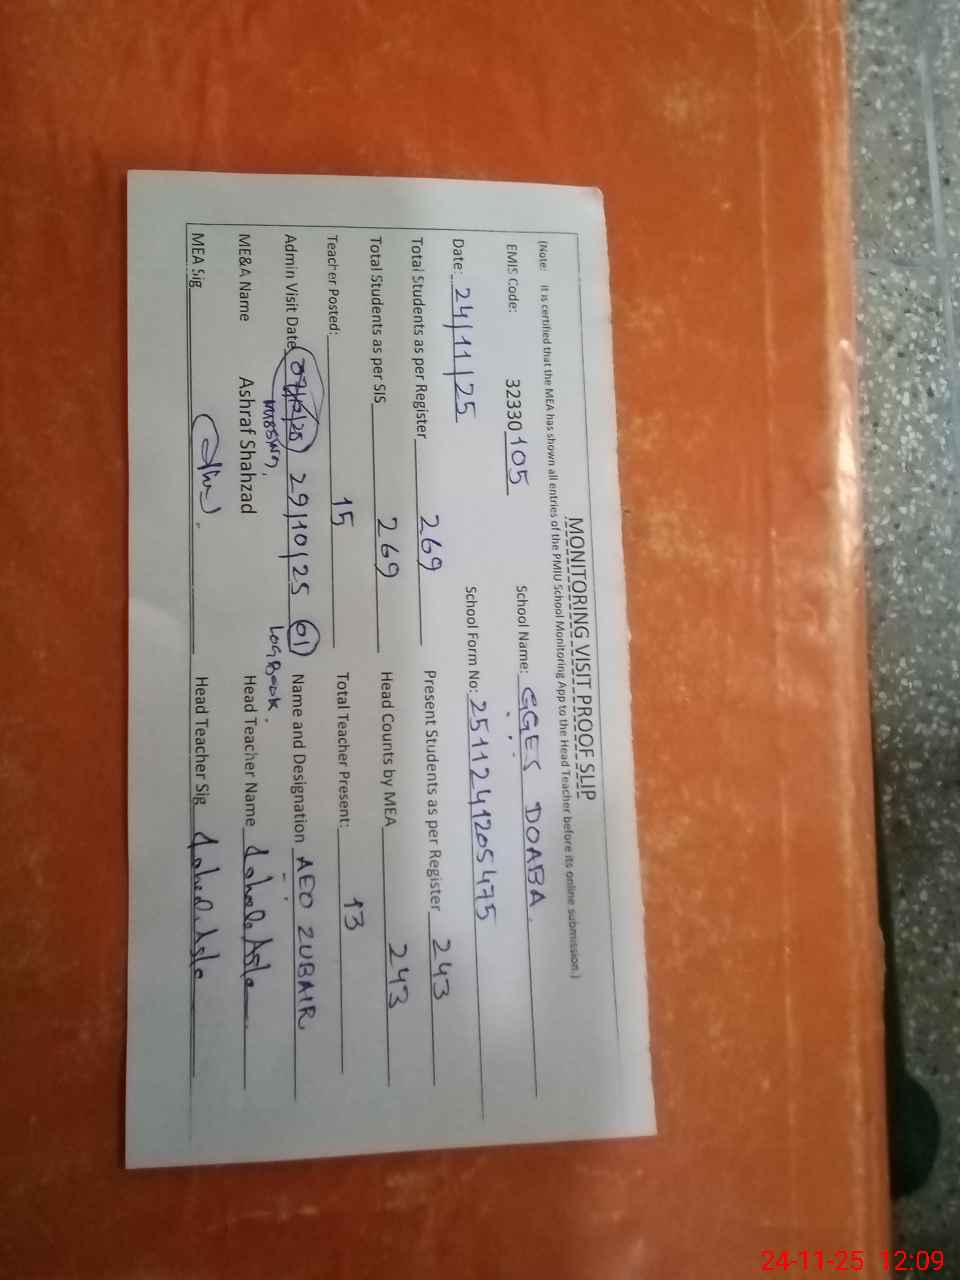 MONITORING VISIT PROOF SLIP
(Note: it is certified that the MEA has shown all entries of the PMIU School Monitoring App to the Head Teacher before its online submission.)
EMIS Code: 32330105 School Name: GGES DOABA.
Date: 24/11/25 School Form No: 2511241205475
Total Students as per Register 269 Present Students as per Register 243
Total Students as per SIS 269 Head Counts by MEA 243
Teacher Posted: 15 Total Teacher Present: 13
Admin Visit Date 29/10/25 01 Name and Designation AEO ZUBAIR
missing. LOGBook.
ME&A Name Ashraf Shahzad Head Teacher Name
MEA Sig Head Teacher Sig
24-11-25 12:09